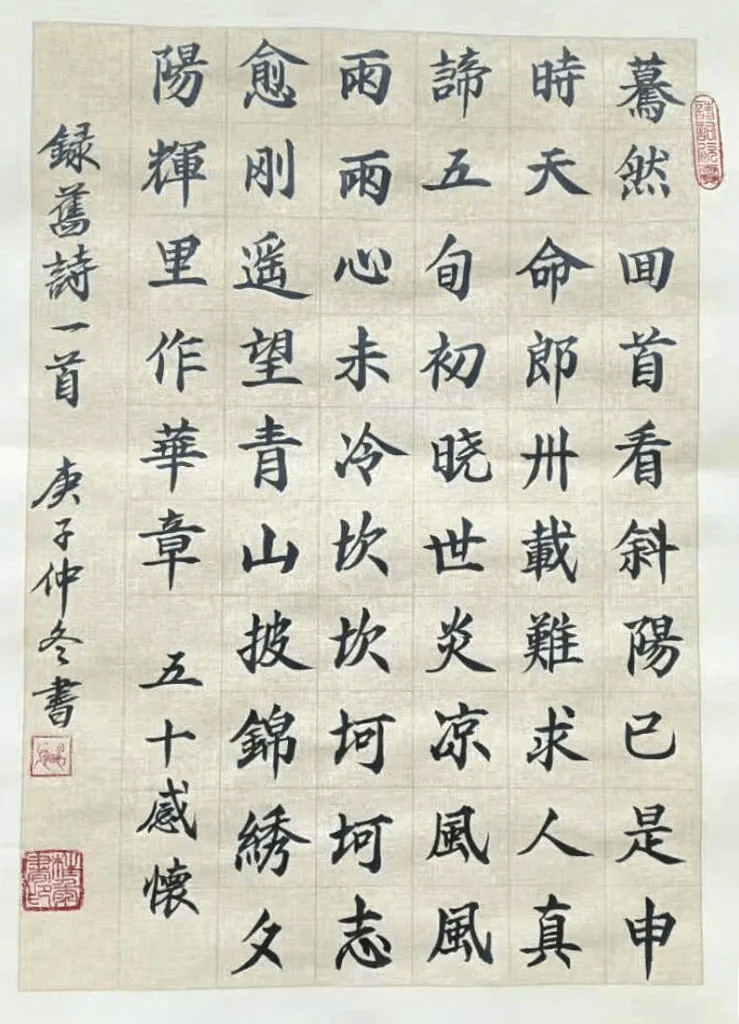 驀然回首看斜陽已是申
時天命郎卅載難求人真
諦五旬初晓世炎凉風風
雨雨心未冷坎坎坷坷志
愈刚遥望青山披錦綉夕
陽輝里作華章 五十感懷
録舊詩一首 庚子仲冬書